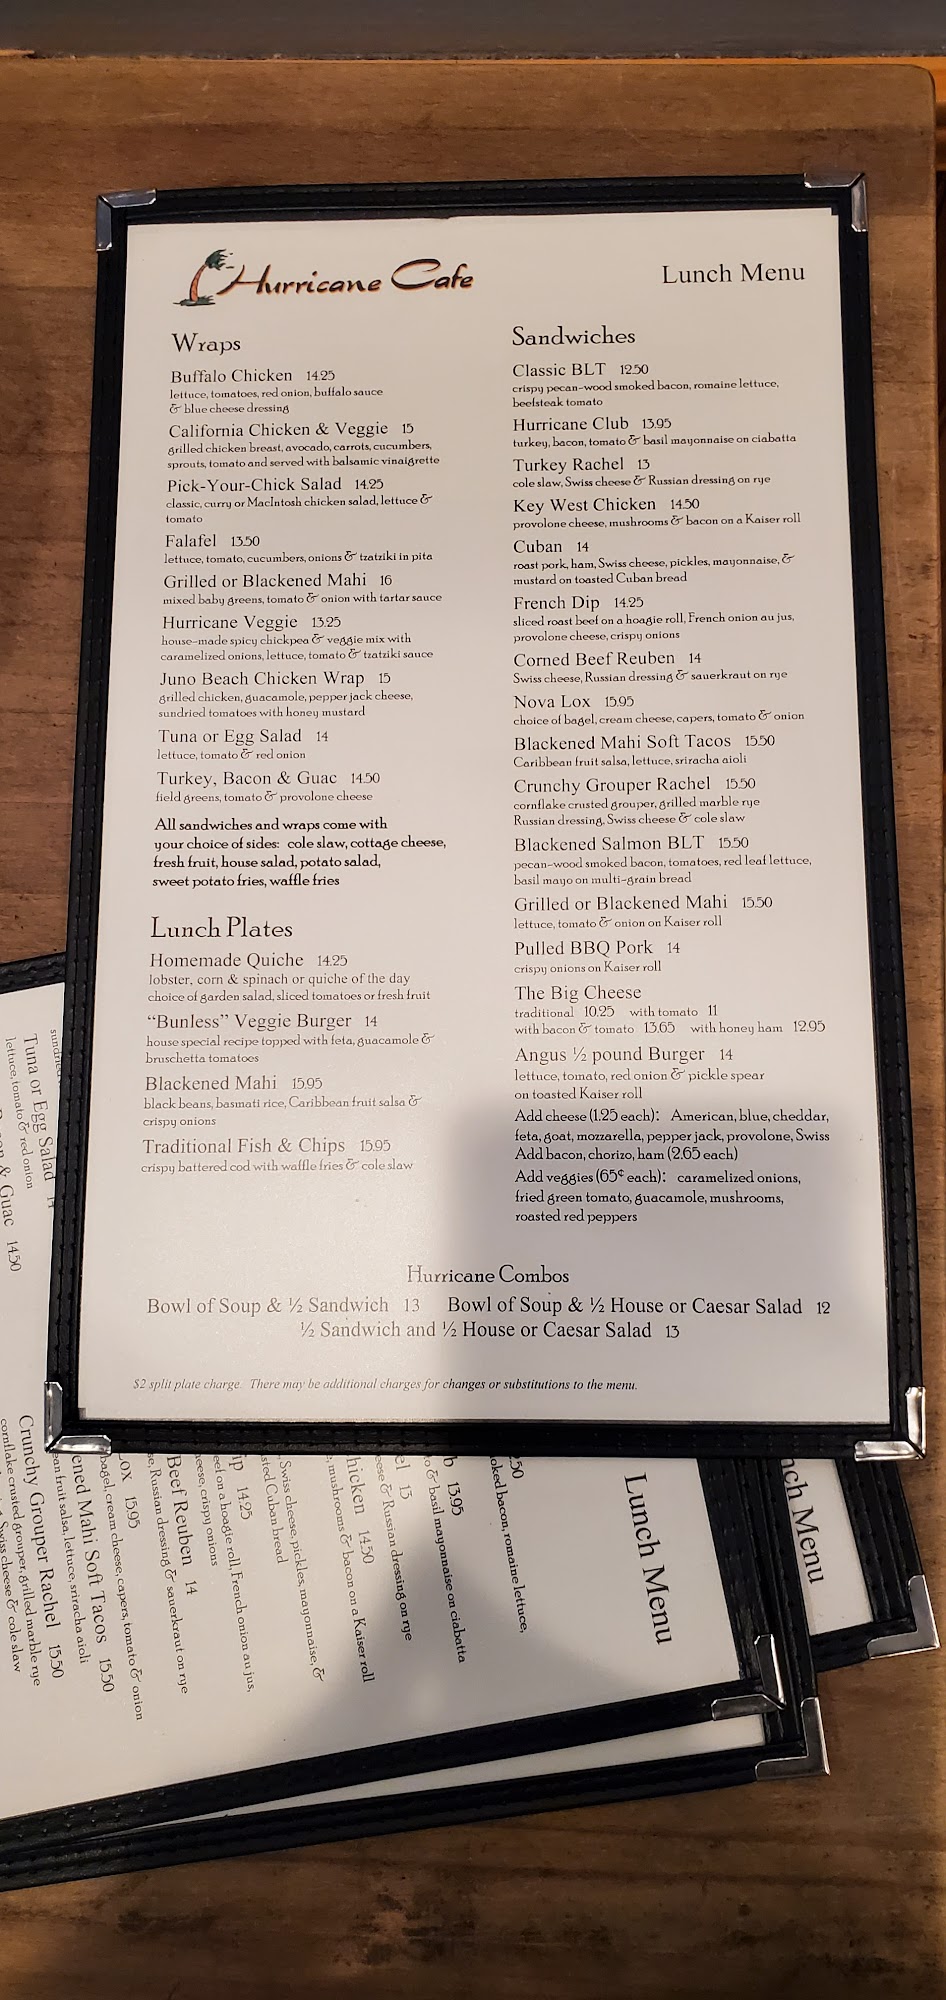 Hurricane Cafe
Lunch Menu
Wraps
Buffalo Chicken 14.25
lettuce, tomatoes, red onion, buffalo sauce
& blue cheese dressing
California Chicken & Veggie 15
grilled chicken breast, avocado, carrots, cucumbers,
sprouts, tomato and served with balsamic vinaigrette
Pick-Your-Chick Salad 14.25
classic, curry or MacIntosh chicken salad, lettuce &
tomato
Falafel 13.50
lettuce, tomato, cucumbers, onions & tzatziki in pita
Grilled or Blackened Mahi 16
mixed baby greens, tomato & onion with tartar sauce
Hurricane Veggie 13.25
house-made spicy chickpea & veggie mix with
caramelized onions, lettuce, tomato & tzatziki sauce
Juno Beach Chicken Wrap 15
grilled chicken, guacamole, pepper jack cheese,
sundried tomatoes with honey mustard
Tuna or Egg Salad 14
lettuce, tomato & red onion
Turkey, Bacon & Guac 14.50
field greens, tomato & provolone cheese
All sandwiches and wraps come with
your choice of sides: cole slaw, cottage cheese,
fresh fruit, house salad, potato salad,
sweet potato fries, waffle fries
Lunch Plates
Homemade Quiche 14.25
lobster, corn & spinach or quiche of the day
choice of garden salad, sliced tomatoes or fresh fruit
“Bunless” Veggie Burger 14
house special recipe topped with feta, guacamole &
bruschetta tomatoes
Blackened Mahi 15.95
black beans, basmati rice, Caribbean fruit salsa &
crispy onions
Traditional Fish & Chips 15.95
crispy battered cod with waffle fries & cole slaw
Sandwiches
Classic BLT 12.50
crispy pecan-wood smoked bacon, romaine lettuce,
beefsteak tomato
Hurricane Club 13.95
turkey, bacon, tomato & basil mayonnaise on ciabatta
Turkey Rachel 13
cole slaw, Swiss cheese & Russian dressing on rye
Key West Chicken 14.50
provolone cheese, mushrooms & bacon on a Kaiser roll
Cuban 14
roast pork, ham, Swiss cheese, pickles, mayonnaise, &
mustard on toasted Cuban bread
French Dip 14.25
sliced roast beef on a hoagie roll, French onion au jus,
provolone cheese, crispy onions
Corned Beef Reuben 14
Swiss cheese, Russian dressing & sauerkraut on rye
Nova Lox 15.95
choice of bagel, cream cheese, capers, tomato & onion
Blackened Mahi Soft Tacos 15.50
Caribbean fruit salsa, lettuce, sriracha aioli
Crunchy Grouper Rachel 15.50
cornflake crusted grouper, grilled marble rye
Russian dressing, Swiss cheese & cole slaw
Blackened Salmon BLT 15.50
pecan-wood smoked bacon, tomatoes, red leaf lettuce,
basil mayo on multi-grain bread
Grilled or Blackened Mahi 15.50
lettuce, tomato & onion on Kaiser roll
Pulled BBQ Pork 14
crispy onions on Kaiser roll
The Big Cheese
traditional 10.25 with tomato 11
with bacon & tomato 13.65 with honey ham 12.95
Angus ½ pound Burger 14
lettuce, tomato, red onion & pickle spear
on toasted Kaiser roll
Add cheese (1.25 each): American, blue, cheddar,
feta, goat, mozzarella, pepper jack, provolone, Swiss
Add bacon, chorizo, ham (2.65 each)
Add veggies (65¢ each): caramelized onions,
fried green tomato, guacamole, mushrooms,
roasted red peppers
Hurricane Combos
Bowl of Soup & ½ Sandwich 13 Bowl of Soup & ½ House or Caesar Salad 12
½ Sandwich and ½ House or Caesar Salad 13
$2 split plate charge. There may be additional charges for changes or substitutions to the menu.
Lunch Menu
.50
oked bacon, romaine lettuce,
b 13.95
o & basil mayonnaise on ciabatta
el 13
eese & Russian dressing on rye
hicken 14.50
e, mushrooms & bacon on a Kaiser roll
Swiss cheese, pickles, mayonnaise, &
sted Cuban bread
ip 14.25
eef on a hoagie roll, French onion au jus,
eese, crispy onions
Beef Reuben 14
se, Russian dressing & sauerkraut on rye
Lox 15.95
bagel, cream cheese, capers, tomato & onion
ened Mahi Soft Tacos 15.50
ean fruit salsa, lettuce, sriracha aioli
Crunchy Grouper Rachel 15.50
cornflake crusted grouper, grilled marble rye
Swiss cheese & cole slaw
sundried
Tuna or Egg Salad 14
lettuce, tomato & red onion
& Guac 14.50
nch Menu